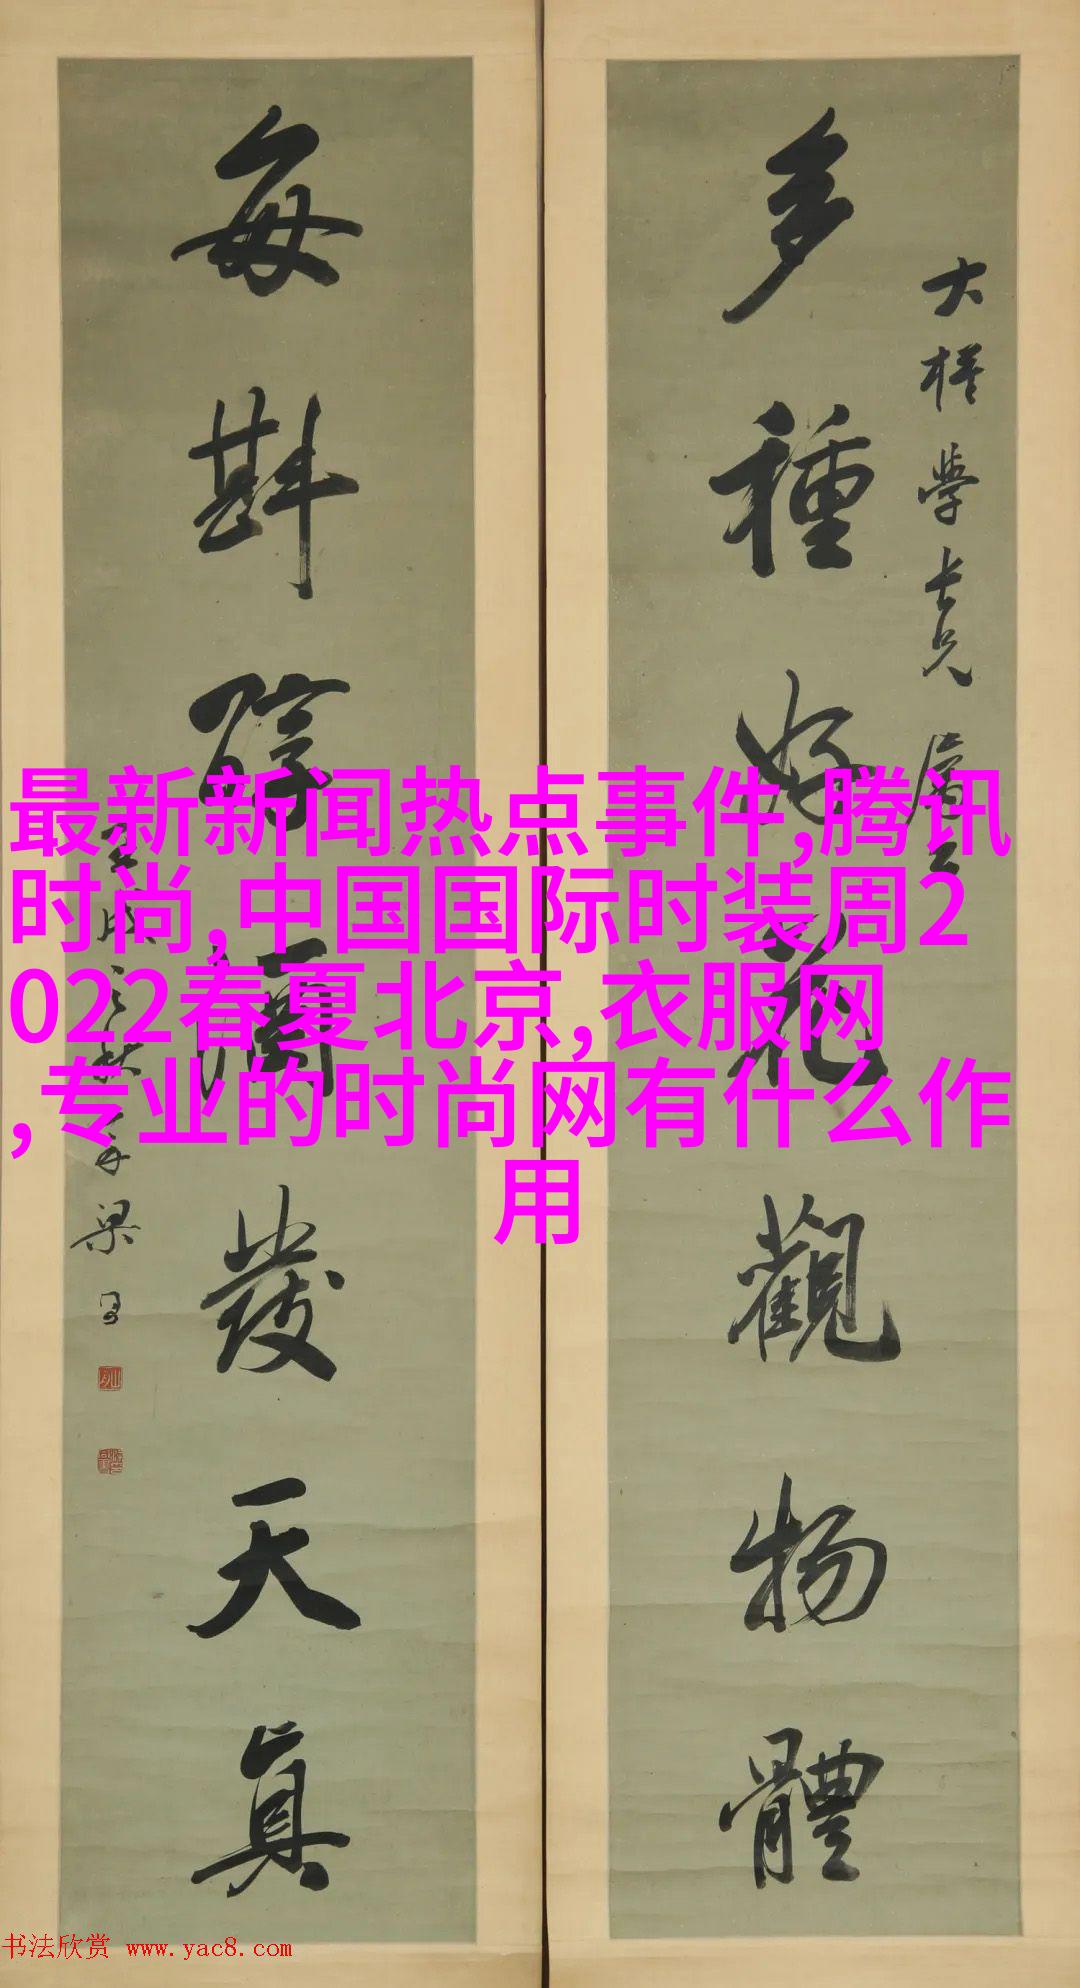 多種好花觀物體
大樑學長兄屬
每斟醇酒發天真
梁
最新新闻热点事件,腾讯
时尚,中国国际时装周2
022春夏北京,衣服网
,专业的时尚网有什么作
用
书法欣赏 www.yac8.com